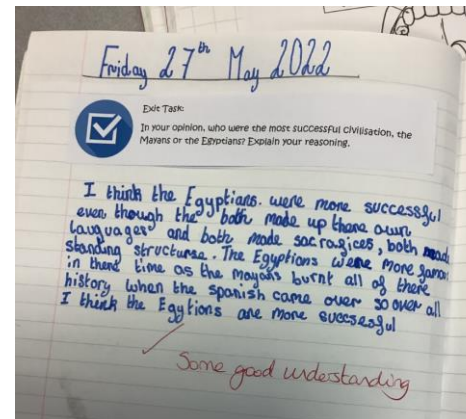 Friday 27th May 2022
Exit Task:
In your opinion, who were the most successful civilisation, the
Mayans or the Egyptians? Explain your reasoning.
I think the Egyptians. were more successful
even though the both made up there own
languages and both made sacrasices, both made
standing structurse. The Egyptions were more famous
in there time as the mayans burnt all of there
history when the spanish came over so over all
I think the Egytions are more succsesful
Some good understanding